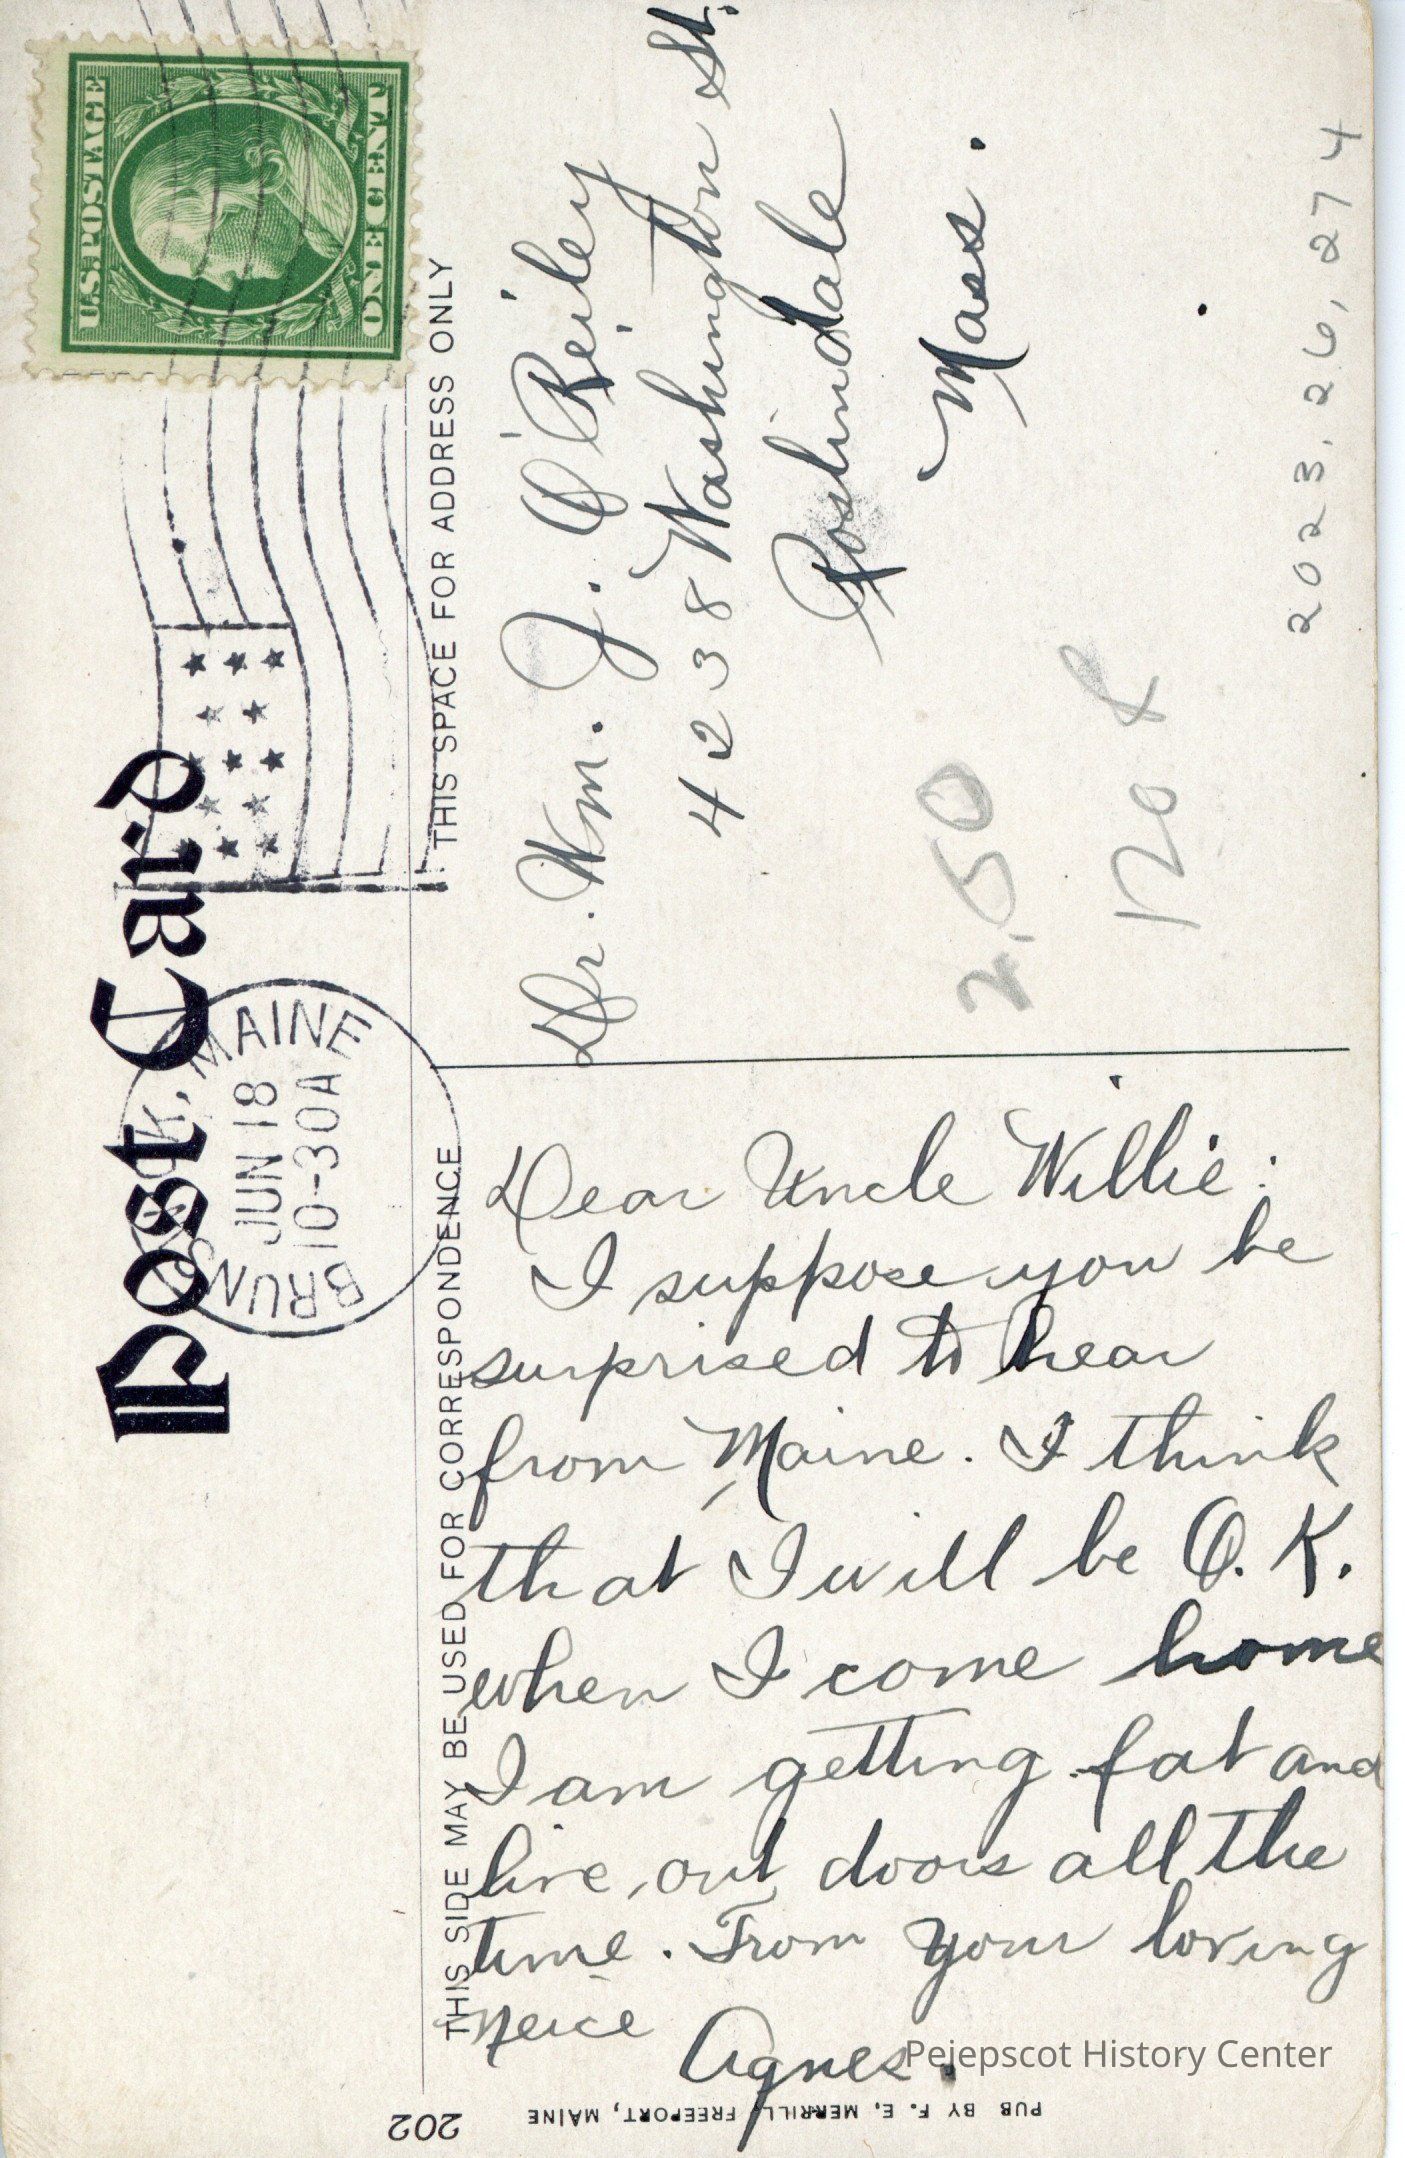 Post Card
U.S. POSTAGE
ONE CENT
MAINE
JUN 18
10-30A
THIS SPACE FOR ADDRESS ONLY
Dr. Wm. J. O'Reiley
4238 Washington St.
Roslindale
Mass.
2.50
2023.26.274
THIS SIDE MAY BE USED FOR CORRESPONDENCE
Dear Uncle Willie:
I suppose you be
surprised to hear
from Maine. I think
that I will be O.K.
when I come home
I am getting fat and
live out doors all the
time. From your loving
neice
Agnes.
202
PUB BY F. E. MERRILL, FREEPORT, MAINE
Pejepscot History Center